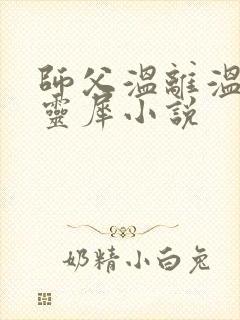 師父溫離溫
靈犀小說
奶精小白兔